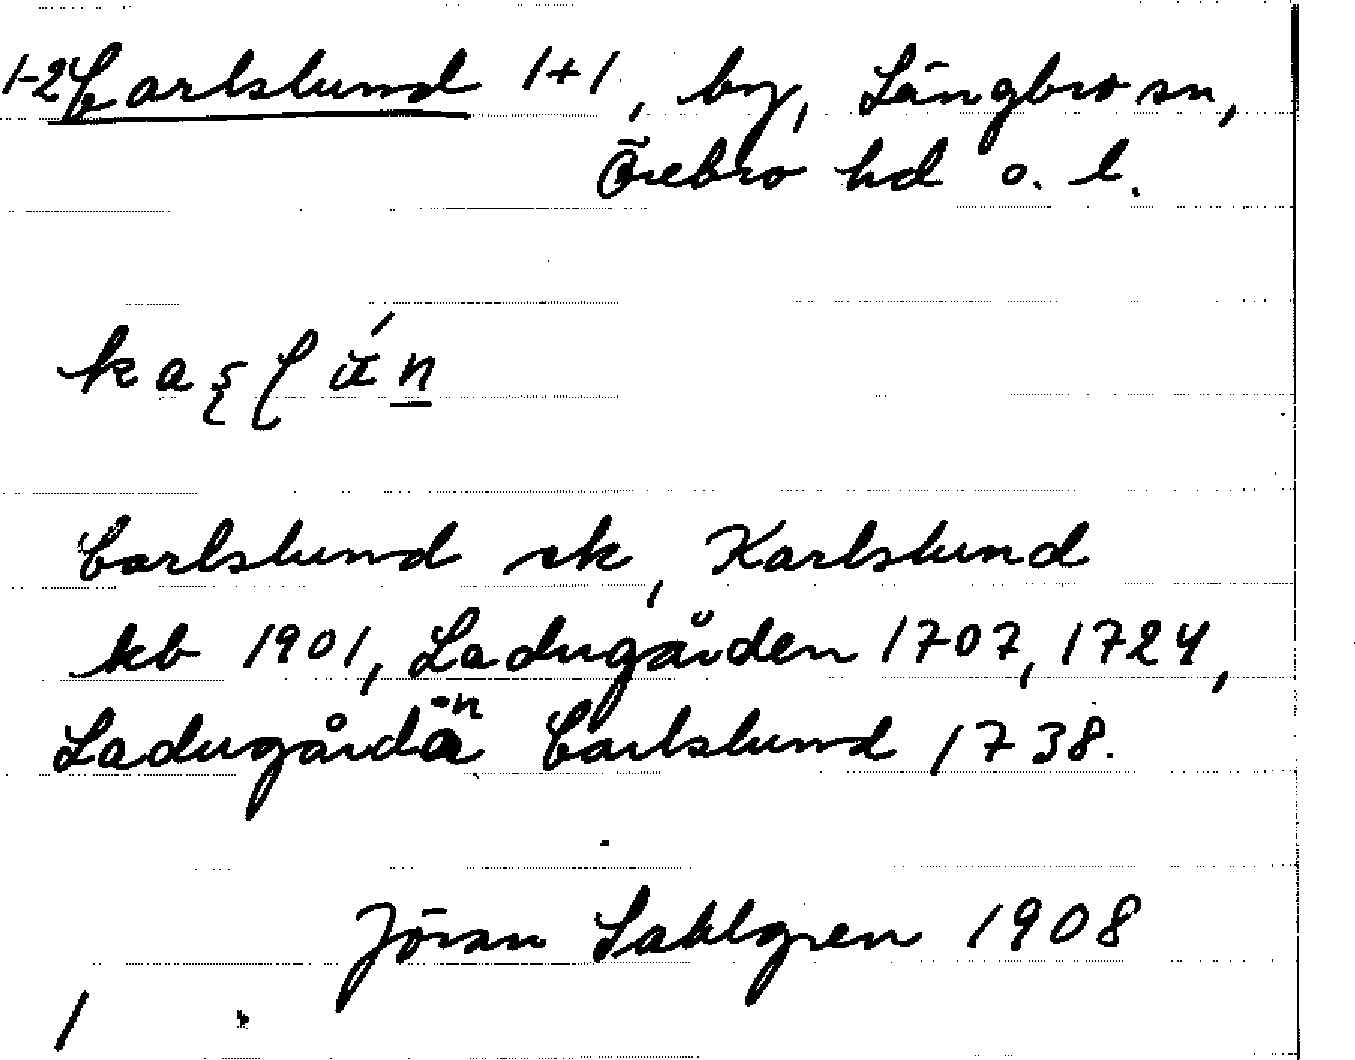 1-2 Carlslund 1+1, by, Längbro sn,
Örebro hd o. l.
Carlslund sk, Karlslund
kb 1901, Ladugården 1707, 1724,
Ladugårdän Carlslund 1738.
Jöran Sahlgren 1908